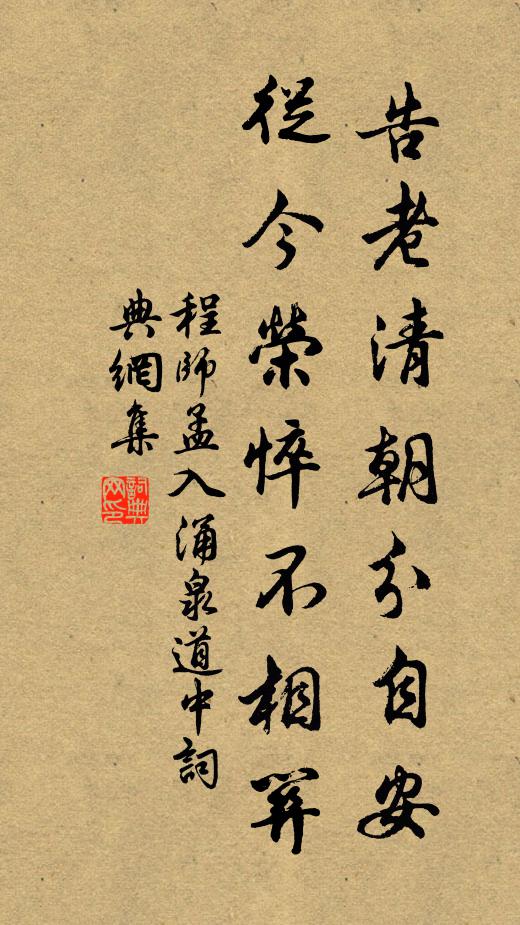 告老清朝分自安
從今榮悴不相關
程師孟入涌泉道中詞
典網集
詞典网印